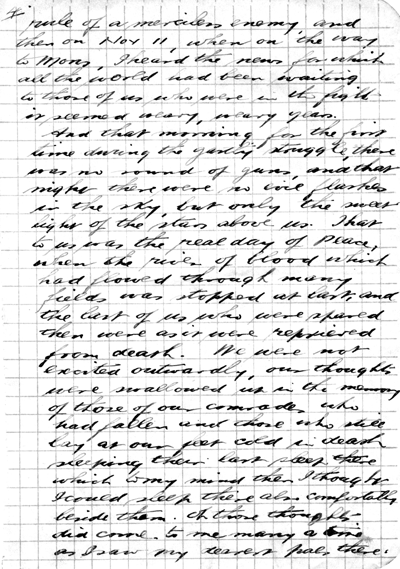 rule of a merciless enemy, and
then on Nov 11, when on the way
to Mons, I heard the news for which
all the world had been waiting
to those of us who were in the fight
it seemed weary, weary years.
And that morning for the first
time during the ghastly struggle, there
was no sound of guns, and that
night there were no evil flashes
in the sky, but only the sweet
light of the stars above us. That
to us was the real day of Peace,
when the river of blood which
had flowed through many
fields was stopped at last, and
the last of us who were spared
then were as it were reprieved
from death. We were not
excited outwardly, our thoughts
were swallowed up in the memory
of those of our comrades who
had fallen and those who still
lay at our feet cold in death
sleeping their last sleep there
which to my mind then I thought
I could sleep there also comfortably
beside them. those thoughts
did come to me many a time
as I saw my dearest pals there.